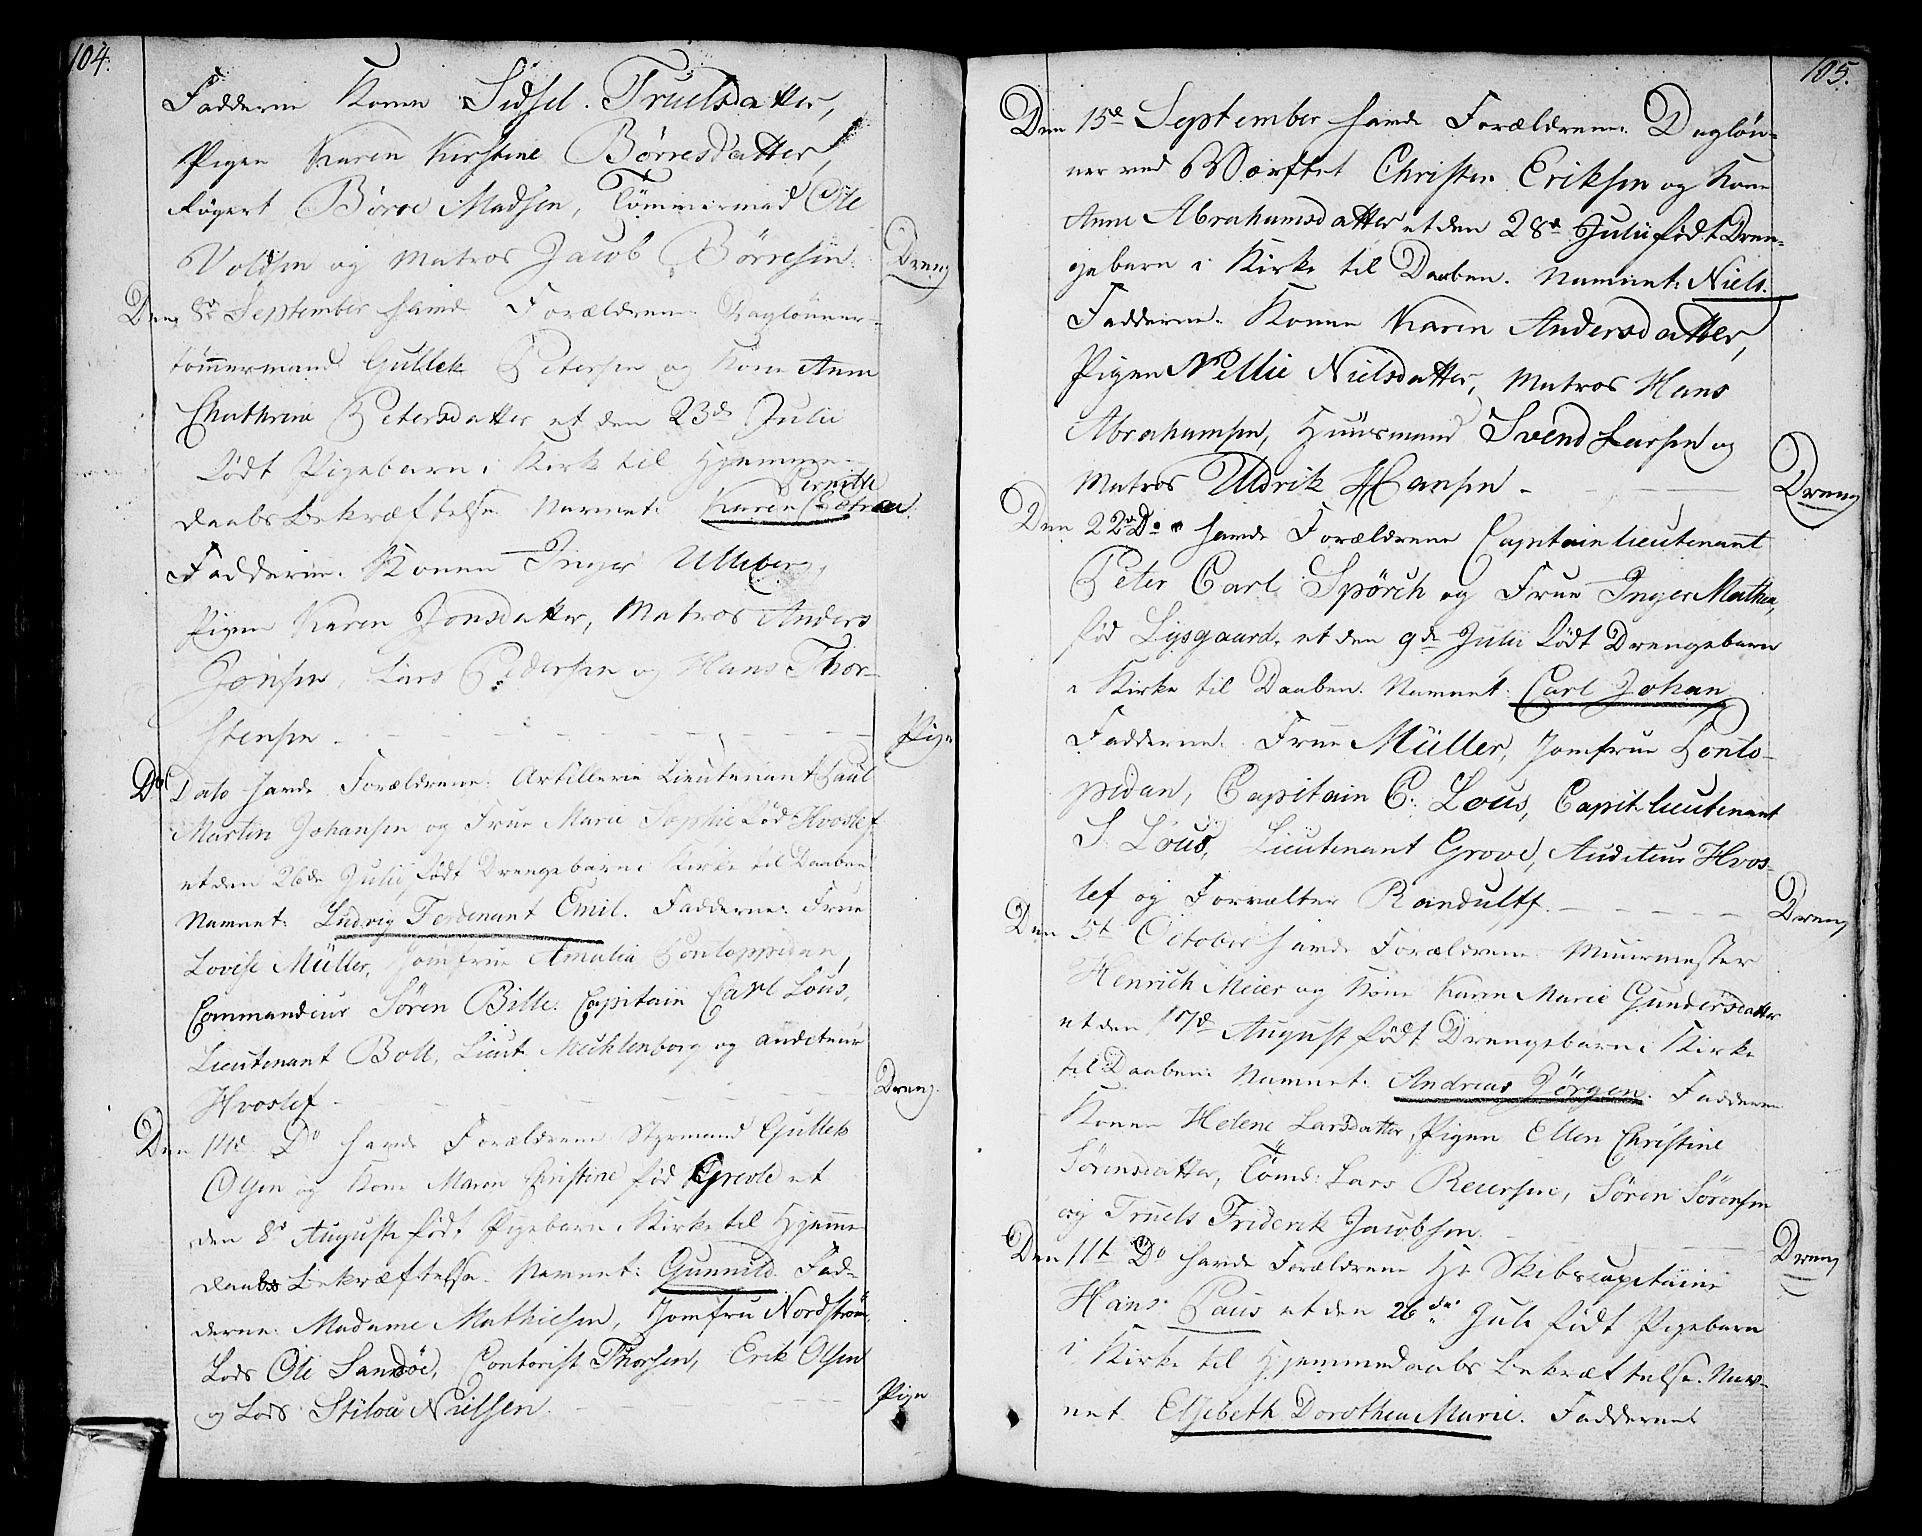 104.
Fadderne Konen Sidsel Truelsdatter,
Pigen Karen Kirstine Børresdatter,
Føgert Børre Madsen, Tømmermd Ole
Voldsen og Matros Jacob Børresen.
Dreng
Den 8de September havde Forældrene Daglønner-
tømmermand Gullek Petersen og Kone Anne
Chathrine Petersdatter et den 23de Julii
født Pigebarn i Kirke til Hjemme-
Pernille
daabs Bekræftelse. Navnet: Karen Petrea.
Fadderne. Konen Inger Ulleberg,
Pigen Karen Jonsdatter, Matros Anders
Jonsen, Lars Pedersen og Hans Thor-
stensen.
Pige
Do Dato havde Forældrene. Artillerie Lieutenant Paul
Martin Johansen og Frue Marie Sophie født Hvoslef
et den 26de Julii født Drengebarn i Kirke til Daaben
Navnet: Ludvig Ferdenant Emil. Fadderne: Frue
Lovise Müller, Jomfrue Amalia Pontoppidan,
Commandeur Sören Bille. Capitain Carl Lous,
Lieutenant Boll, Lieut. Mechlenborg og Auditeur
Hvoslef
Dreng.
Den 14de Do havde Forældrene Styrmand Gullek
Olsen og Kone Maren Christine fød Greve et
den 8de Auguste født Pigebarn i Kirke til Hjemme
daabs Bekræftelse. Navnet: Gunnild. Fad-
derne: Madame Mathiesen, Jomfru Nordström,
Lods Ole Sandöe, Contorist Thorsen, Erik Olsen
og Lods Stilou Nielsen.
Pige
105.
Den 15de September havde Forældrene. Dagløn-
ner ved Værftet Christen Eriksen og Kone
Anne Abrahamsdatter et den 28de Julii født Dren-
gebarn i Kirke til Daaben. Navnet: Niels.
Fadderne. Konen Karen Andersdatter,
Pigen Nellie Nielsdatter, Matros Hans
Abrahamsen, Huusmand Svend Larsen og
Matros Uldrik Hansen
Dreng
Den 22de Do havde Forældrene Captainlieutenant
Peter Carl Spörch og Frue Inger Mathea,
fød Lysgaard. et den 9de Julii født Drengebarn
i Kirke til Daaben. Navnet: Carl Johan
Fadderne. Frue Müller, Jomfrue Ponto-
pidan, Capitain C. Lous, Capit.lieutenant
S. Lous, Lieutenant Grove, Auditeur Hvos-
lef og Forvalter Randulff.
Dreng
Den 5t October havde Forældrene Muurmester
Henrich Meier og Kone Karen Marie Gundersdatter
et den 17de August født Drengebarn i Kirke
til Daaben. Navnet: Andreas Jörgen. Fadderne
Konen Helene Larsdatter, Pigen Ellen Christine
Sörensdatter, Tömd: Lars Reiersen, Sören Sörensen
og Truels Friderik Jacobsen.
Dreng
Den 11t Do havde Forældrene Hr Skibscapitaine
Hans Paus et den 26de Juli født Pigebarn
i Kirke til Hjemmedaabs Bekræftelse. Nav-
net Elsebeth Dorothea Marie. Fadderne